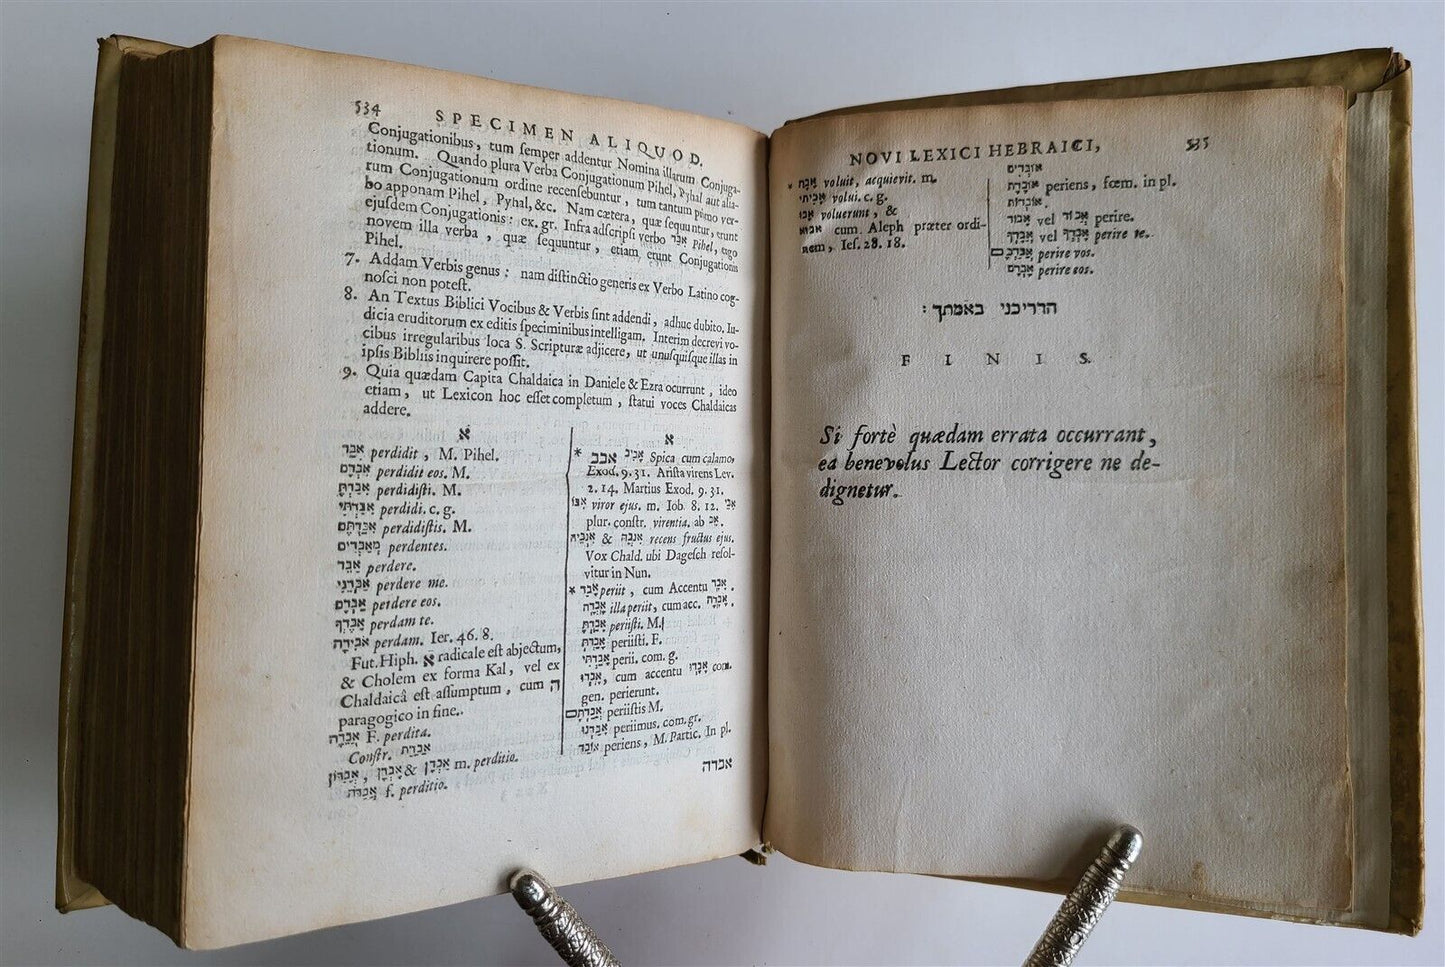 534 SPECIMEN ALIQUOD.
Conjugationibus, tum ſemper addentur Nomina illarum Conjuga-
tionum. Quando plura Verba Conjugationum Pihel, Pyhal aut alia-
rum Conjugationum ordine recenſebuntur, tum tantum primo ver-
bo apponam Pihel, Pyhal, &c. Nam cætera, quæ ſequuntur, erunt
ejuſdem Conjugationis: ex. gr. Infra adſcripſi verbo אבד Pihel, ergo
novem illa verba, quæ ſequuntur, etiam erunt Conjugationis
Pihel.
7. Addam Verbis genus: nam diſtinctio generis ex Verbo Latino cog-
noſci non poteſt.
8. An Textus Biblici Vocibus & Verbis ſint addendi, adhuc dubito. Iu-
dicia eruditorum ex editis ſpeciminibus intelligam. Interim decrevi vo-
cibus irregularibus loca S. Scripturæ adjicere, ut unuſquiſque illas in
ipſis Bibliis inquirere poſſit.
9. Quia quædam Capita Chaldaica in Daniele & Ezra occurrunt, ideo
etiam, ut Lexicon hoc eſſet completum, ſtatui voces Chaldaicas
addere.
א
אִבַּד perdidit, M. Pihel.
אִבְּדָם perdidit eos. M.
אִבַּדְתָּ perdidiſti. M.
אִבַּדְתִּי perdidi. c. g.
אִבַּדְתֶּם perdidiſtis. M.
מְאַבְּדִים perdentes.
אַבֵּד perdere.
אַבְּדֵנִי perdere me.
אַבְּדָם perdere eos.
אַבֶּדְךָ perdam te.
אֹבִידָה perdam. Ier. 46. 8.
Fut. Hiph. א radicale eſt abjectum,
& Cholem ex forma Kal, vel ex
Chaldaicâ eſt aſſumptum, cum ה
paragogico in fine.
אֲבֵדָה F. perdita.
Conſtr. אֲבֵדַת
אֲבַדּוֹן, אֲבַדֹּן & אָבְדָן m. perditio.
אֲבַדֹּה f. perditio.
א
* אבב אָבִיב Spica cum calamo,
Exod. 9. 31. Ariſta virens Lev.
2. 14. Martius Exod. 9. 31.
אִבּוֹ viror ejus. m. Iob. 8. 12. אִבֵּי
plur. conſtr. virentia. ab אֵב.
אִנְבֵּהּ & אִנְבֵּהּ recens fructus ejus.
Vox Chald. ubi Dageſch reſol-
vitur in Nun.
* אָבַד periit, cum Accentu אָבָד
אָבְדָה illa periit, cum acc. אָבָדָה.
אָבַדְתָּ periiſti. M.
אָבַדְתְּ periiſti. F.
אָבַדְתִּי perii. com. g.
אָבְדוּ, cum accentu אָבָדוּ com.
gen. perierunt.
אֲבַדְתֶּם periiſtis M.
אָבַדְנוּ periimus. com. gr.
אוֹבֵד periens, M. Partic. In pl.
אבדה
NOVI LEXICI HEBRAICI, 535
* אָבָה voluit, acquievit. m.
אָבִיתִי volui. c. g.
אָבוּ voluerunt, &
אבוא cum. Aleph præter ordi-
nem, Ieſ. 28. 18.
אוֹבְדִים
אוֹבֶדֶת periens, fœm. in pl.
אוֹבְדוֹת.
אָבוֹד vel אֲבוֹד perire.
אֲבָדְךָ vel אֲבָדֶךָ perire te.
אֲבָדְכֶם perire vos.
אָבְדָם perire eos.
הדריכני באמתך:
FINIS.
Si fortè quædam errata occurrant,
ea benevolus Lector corrigere ne de-
dignetur.